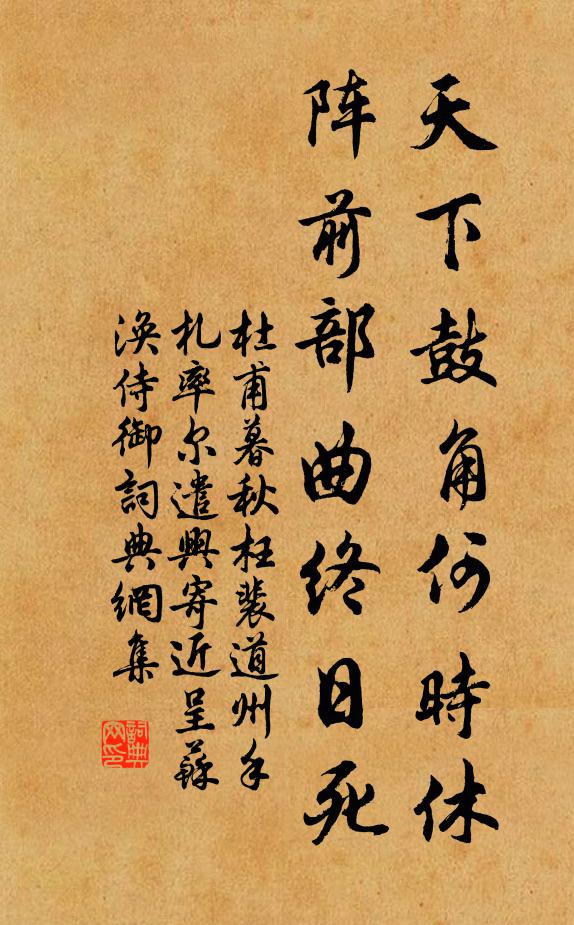 天下鼓角何時休
阵前部曲終日死
杜甫暮秋枉裴道州手
札率尔遣興寄近呈蘇
渙侍御詞典網集
詞典网印